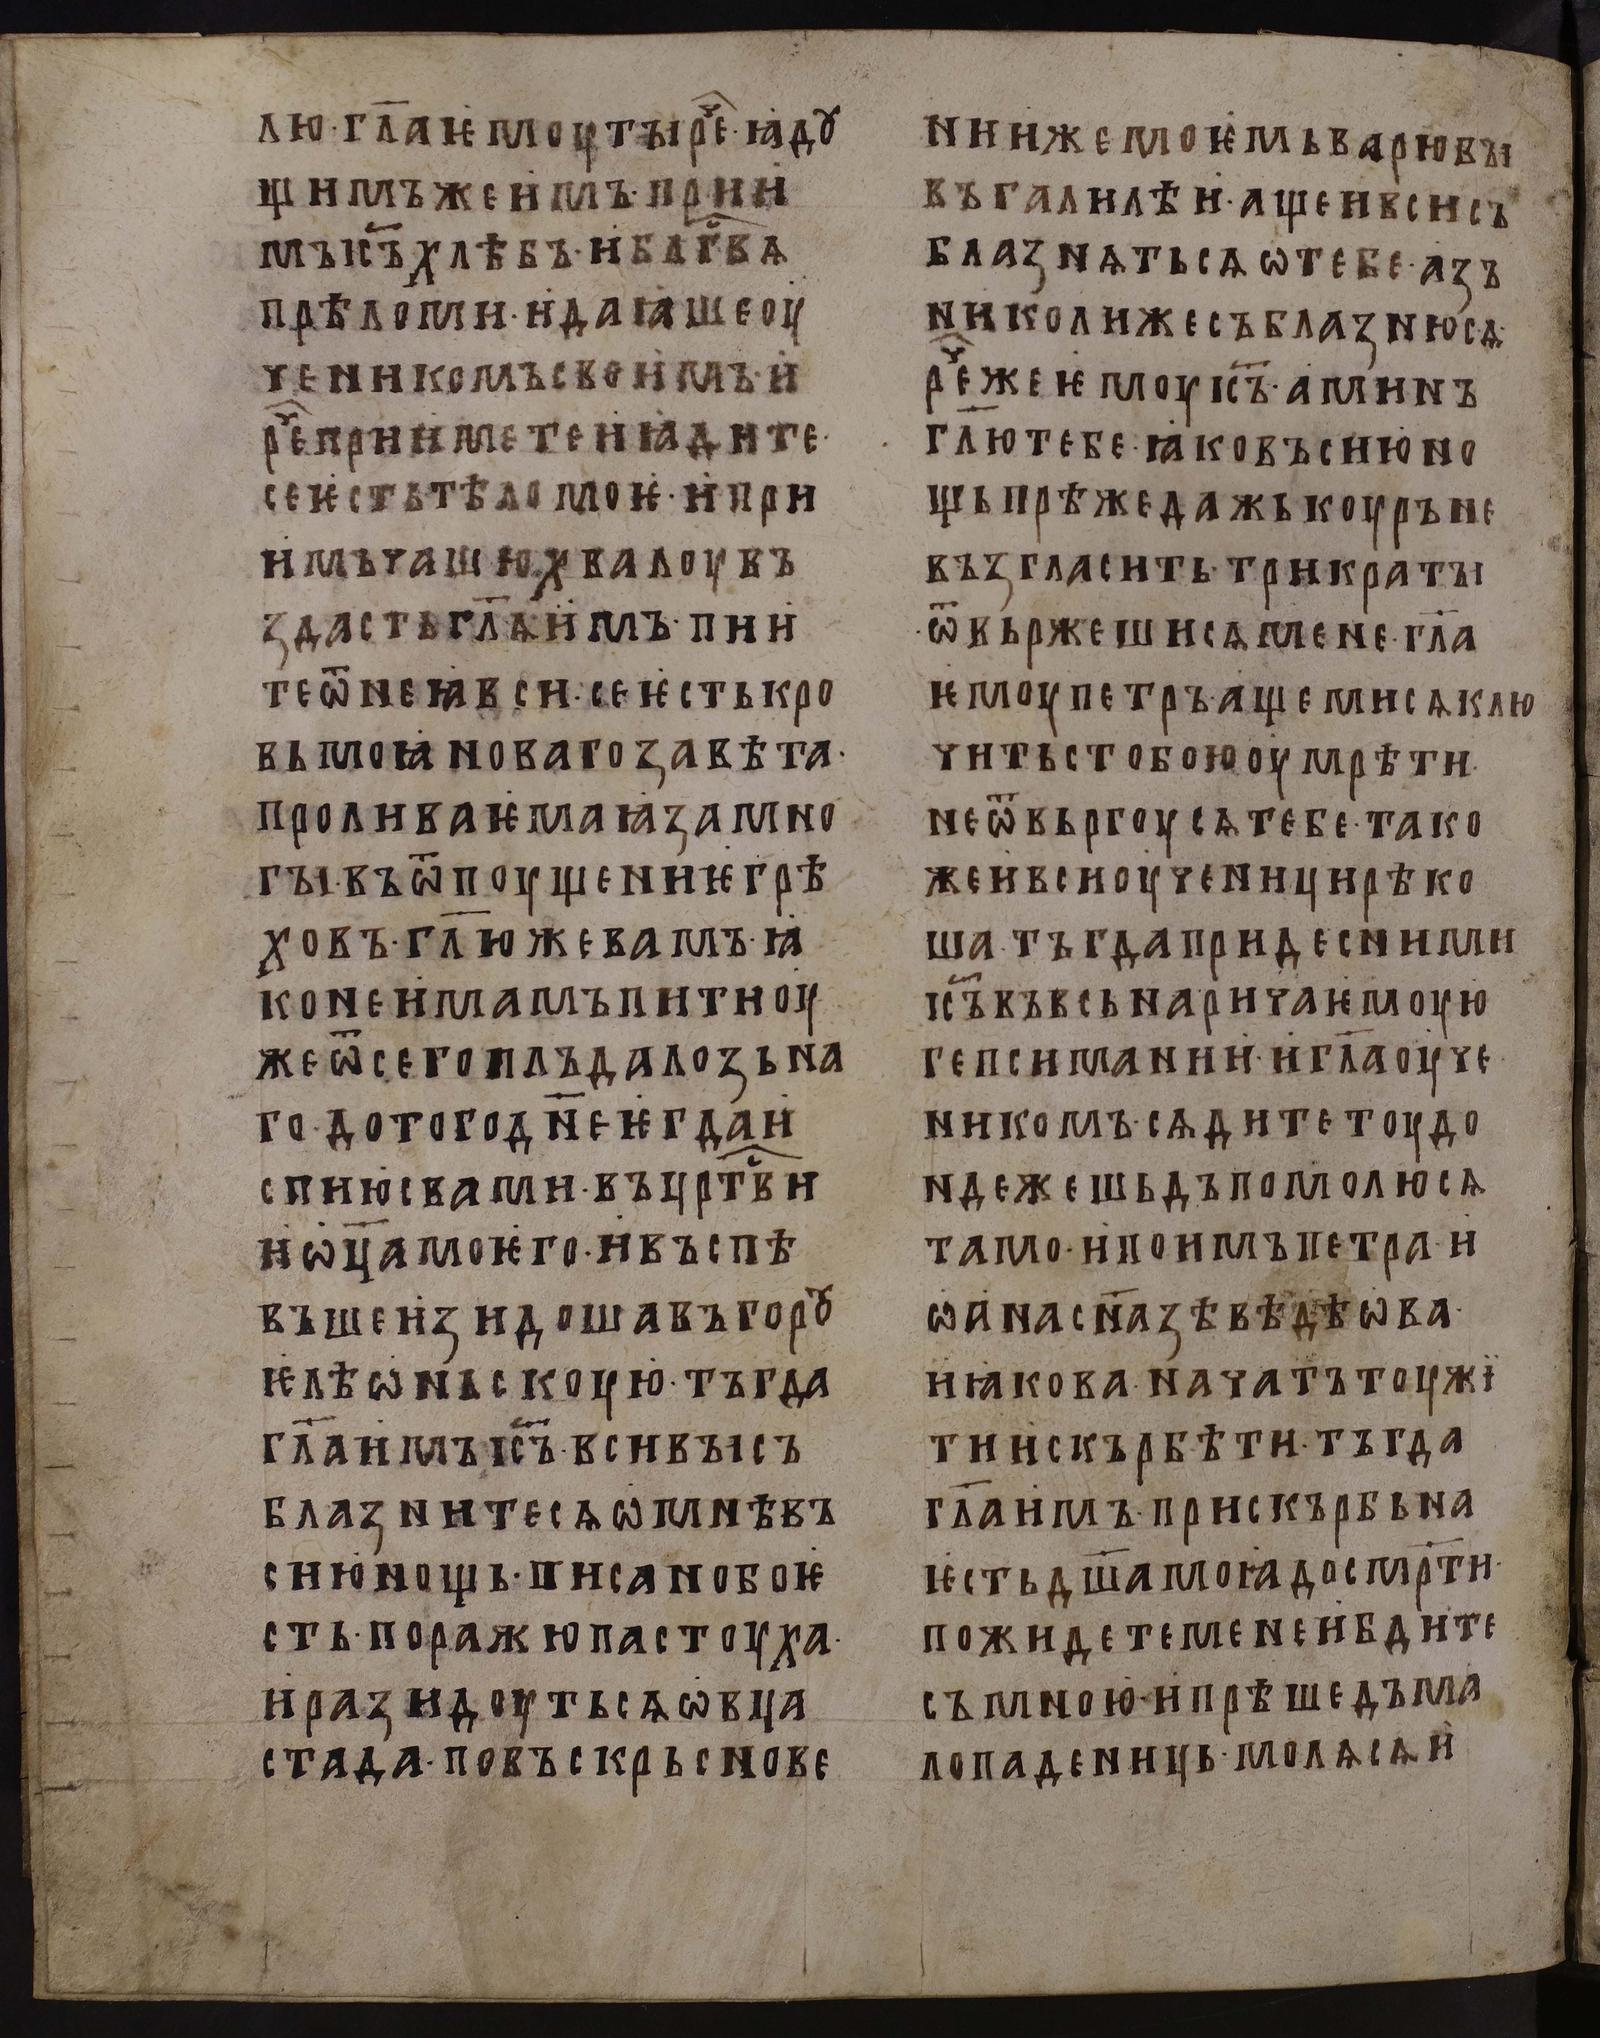 лю·гл҃аѥмоутꙑреⷱ҇·ꙗдꙋ
щимъжеимъ·прии
мъіс҃ъхлѣбъ·иблагⷭ҇вѧ
прѣломи·идаꙗшеоу
ченикомъсвоимъ·и
реⷱ҇приимѣтеиꙗдите·
сеѥстьтѣломоѥ·ипри
имъчашюхвалоувъ
здастьгл҃аимъ·пии
теѿнеꙗвси·сеѥстькро
вьмоꙗновагозавѣта·
проливаѥмаꙗзамно
гꙑ·въѿпоущениѥгрѣ
ховъ·гл҃южевамъ·ꙗ
конеимамъпитиоу
жеѿсегоплъдалозьна
го·дотогодн҃еѥгдаи
спиюсвами·въцртⷭ҇ви
иѡц҃амоѥго·ивъспѣ
въшеизидошавъгорꙋ
ѥлѣѡньскоую·тъгда
гл҃аимъіс҃ъ·всивꙑсъ
блазнитесѧѡмнѣвъ
сиюнощь·писанобоѥ
сть·поражюпастоуха·
иразидоутьсѧѡвца
стада·повъскрьснове
ниижемоѥмьварювꙑ
въгалилѣи·ащеивсисъ
блазнѧтьсѧѡтебе·азъ
николижесъблазнюсѧ·
реⷱ҇жеѥмоуіс҃ъ·аминъ
гл҃ютебе·ꙗковъсиюно
щьпрѣжедажькоуръне
възгласить·трикратꙑ
·ѿвьржешисѧмене·гл҃а
ѥмоупетръ·ащемисѧклю
читьстобоюоумрѣти·
неѿвьргоусѧтебе·тако
жеивсиоученицирѣко
ша·тъгдапридесними
іс҃ъвъвсьнаричаѥмоую
гепсимании·игл҃аоуче
никомъ·сѧдитетоудо
идежешьдъпомолюсѧ
тамо·ипоимъпетра·и
ѡанасн҃азѣвѣдѣѡва·
иꙗкова·начатътоужї
тиискърбѣти·тъгда
гл҃аимъ·прискърбьна
ѥстьдш҃амоꙗдосмрт҃и·
пождидетеменеибдите
съмною·ипрѣшедъма
лопаденицьмолѧсѧи